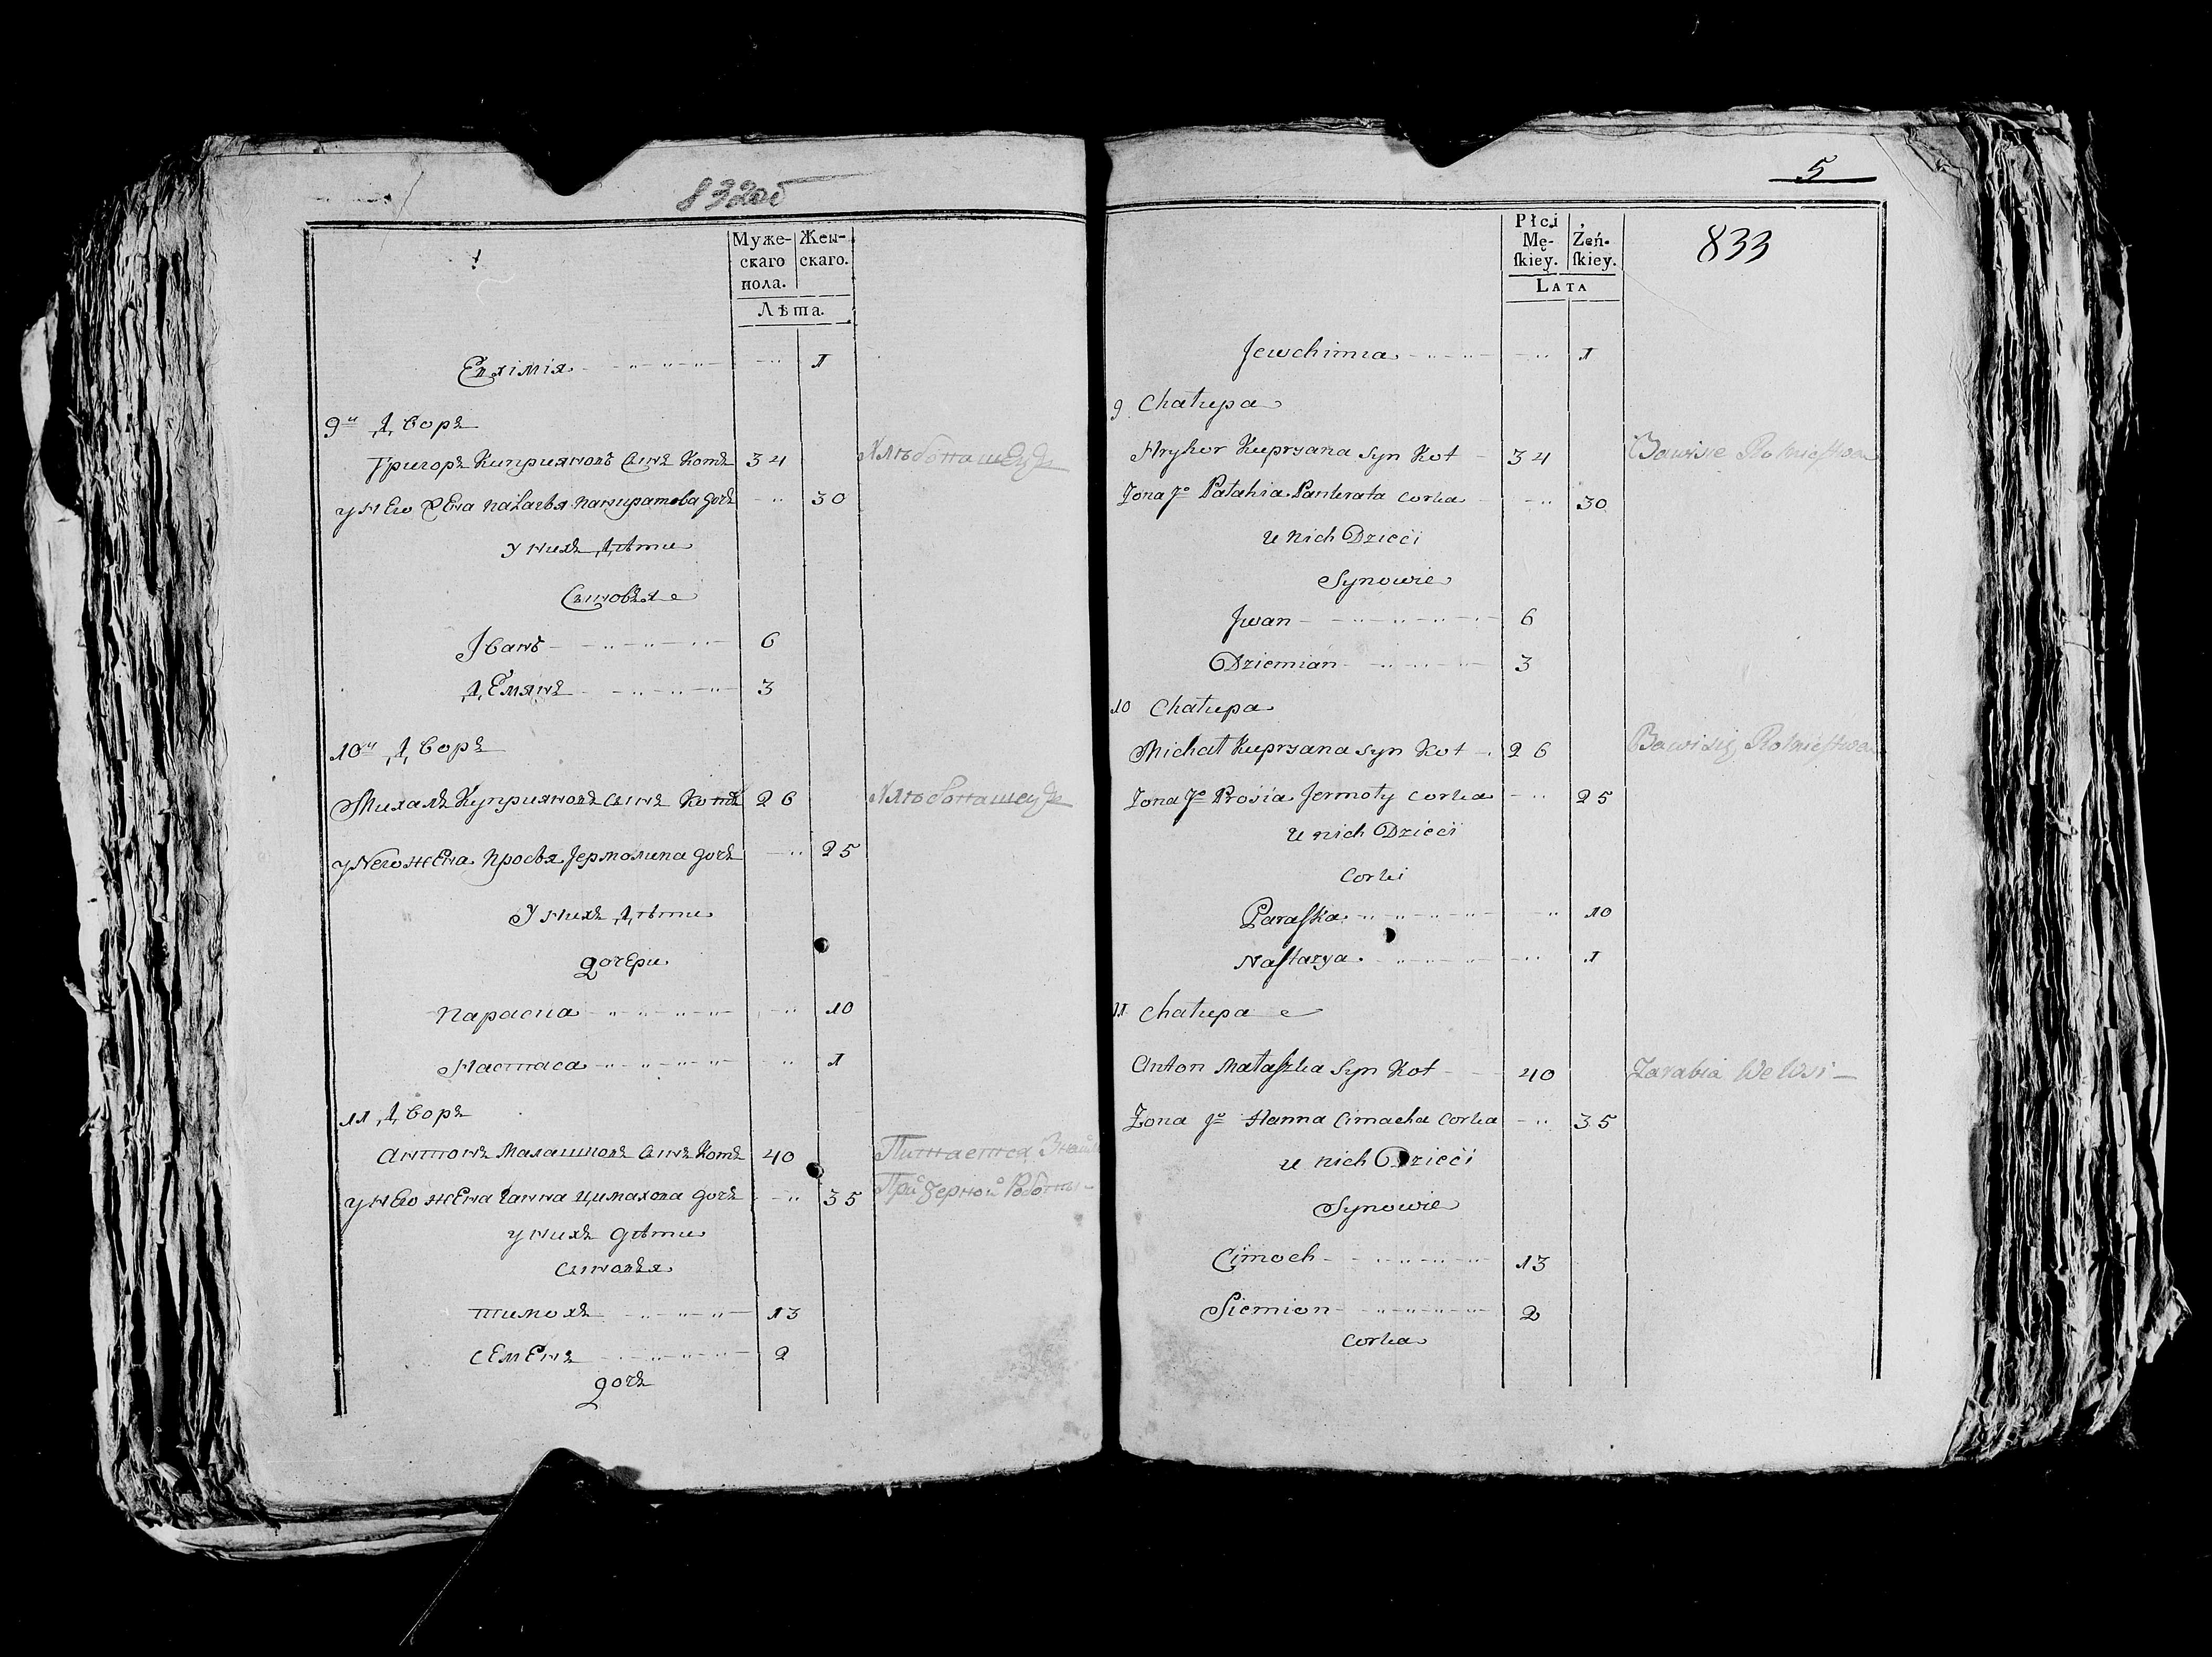 832об
Муже-
скаго
пола.
Жен-
скаго.
Лѣта.
Евхимія 1
9й Дворъ
Григоръ Киприяновъ Сынъ Котъ 34
у нЕго жЕна палагья панкратова дочъ 30
у нихъ Дѣти
Сыновья
Іванъ 6
ДЕмянъ 3
10й Дворъ
Михалъ Куприяновъ Сынъ Котъ 26
у Него жЕна просья Јермолина дочъ 25
У нихъ Дѣти
дочЕри
параска 10
Настаса 1
11 Дворъ
антонъ Малашковъ Сынъ Котъ 40 Питается
у нЕго жЕна Ганна Цимахова дочъ 35 При Черной Роботы
у нихъ дѣти
Сыновья
тимохъ 13
сЕмЕнъ 2
дочъ
5
833
Płci
Mę-
ſkiey.
Żeń-
ſkiey.
Lata
Jewchimia 1
9 Chałupa
Hryhor Kupryana Syn Kot 34 Rolnictwem
Żona Jo Pałahia Pankrata corka 30
u nich Dzieci
Synowie
Jwan 6
Dziemian 3
10 Chałupa
Michał Kupryana Syn Kot 26 Bawi się Rolnictwem
Żona Jo Prosia Jermoły corka 25
u nich Dzieci
Corki
Paraſka 10
Naſtazya 1
11 Chałupa
Anton Małaſzka Syn Kot 40 Zarabia We Wsi
Żona Jo Hanna Cimacha Corka 35
u nich Dzieci
Synowie
Cimoch 13
Siemion 2
Corka